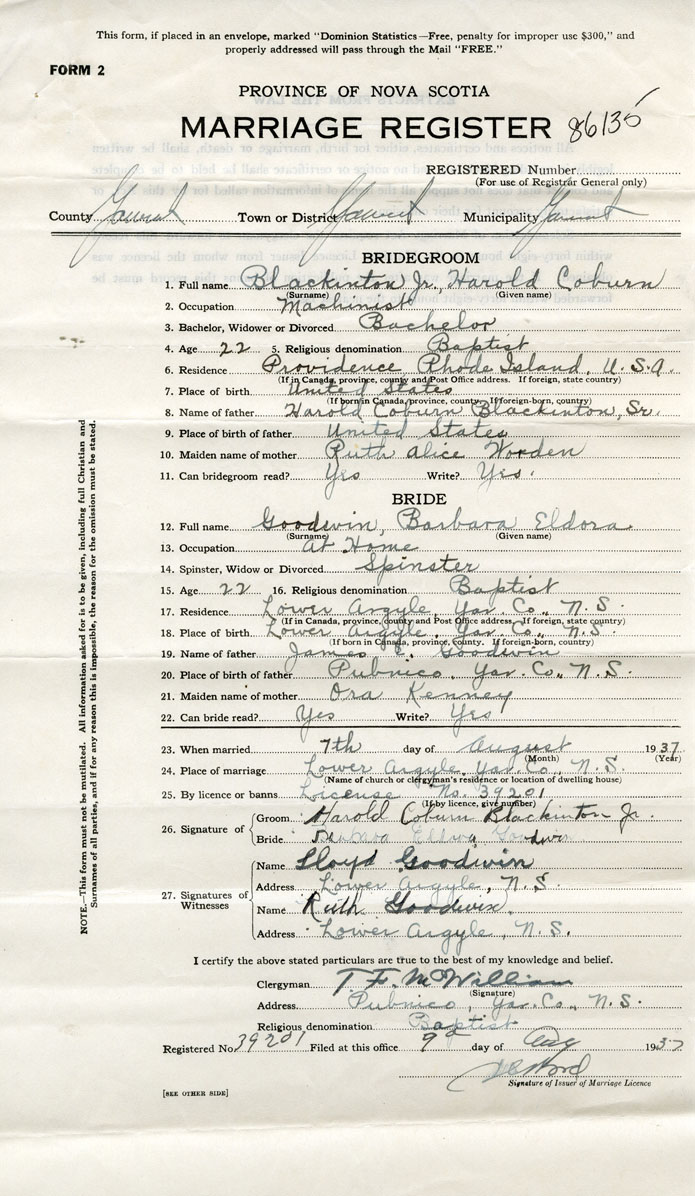 This form, if placed in an envelope, marked "Dominion Statistics—Free, penalty for improper use $300," and
properly addressed will pass through the Mail "FREE."
FORM 2
PROVINCE OF NOVA SCOTIA
MARRIAGE REGISTER 86135
REGISTERED Number
(For use of Registrar General only)
County Yarmouth Town or District Yarmouth Municipality Yarmouth
BRIDEGROOM
1. Full name Blackinton Jr., Harold Coburn
(Surname) (Given name)
2. Occupation Machinist
3. Bachelor, Widower or Divorced Bachelor
4. Age 22 5. Religious denomination Baptist
6. Residence Providence, Rhode Island, U.S.A.
(If in Canada, province, county and Post Office address. If foreign, state country)
7. Place of birth United States
(If born in Canada, province, county. If foreign-born, country)
8. Name of father Harold Coburn Blackinton, Sr.
9. Place of birth of father United States
10. Maiden name of mother Ruth Alice Worden
11. Can bridegroom read? Yes Write? Yes.
BRIDE
12. Full name Goodwin, Barbara Eldora
(Surname) (Given name)
13. Occupation At Home
14. Spinster, Widow or Divorced Spinster
15. Age 22 16. Religious denomination Baptist
17. Residence Lower Argyle, Yar. Co., N.S.
(If in Canada, province, county and Post Office address. If foreign, state country)
18. Place of birth Lower Argyle, Yar. Co., N.S.
(If born in Canada, province, county. If foreign-born, country)
19. Name of father James E. Goodwin
20. Place of birth of father Pubnico, Yar. Co., N.S.
21. Maiden name of mother Ora Kenney
22. Can bride read? Yes Write? Yes
23. When married 7th day of August 1937
(Month) (Year)
24. Place of marriage Lower Argyle, Yar. Co., N.S.
(Name of church or clergyman's residence or location of dwelling house)
25. By licence or banns License No. 39201
(If by licence, give number)
26. Signature of
Groom Harold Coburn Blackinton Jr.
Bride Barbara Eldora Goodwin
27. Signatures of Witnesses
Name Lloyd Goodwin
Address Lower Argyle, N.S.
Name Ruth Goodwin
Address Lower Argyle, N.S.
I certify the above stated particulars are true to the best of my knowledge and belief.
Clergyman T. F. McWilliam
(Signature)
Address Pubnico, Yar. Co., N.S.
Religious denomination Baptist
Registered No. 39201 Filed at this office 9th day of Aug 1937
Signature of Issuer of Marriage Licence
[SEE OTHER SIDE]
NOTE.—This form must not be mutilated. All information asked for is to be given, including full Christian and
Surnames of all parties, and if for any reason this is impossible, the reason for the omission must be stated.